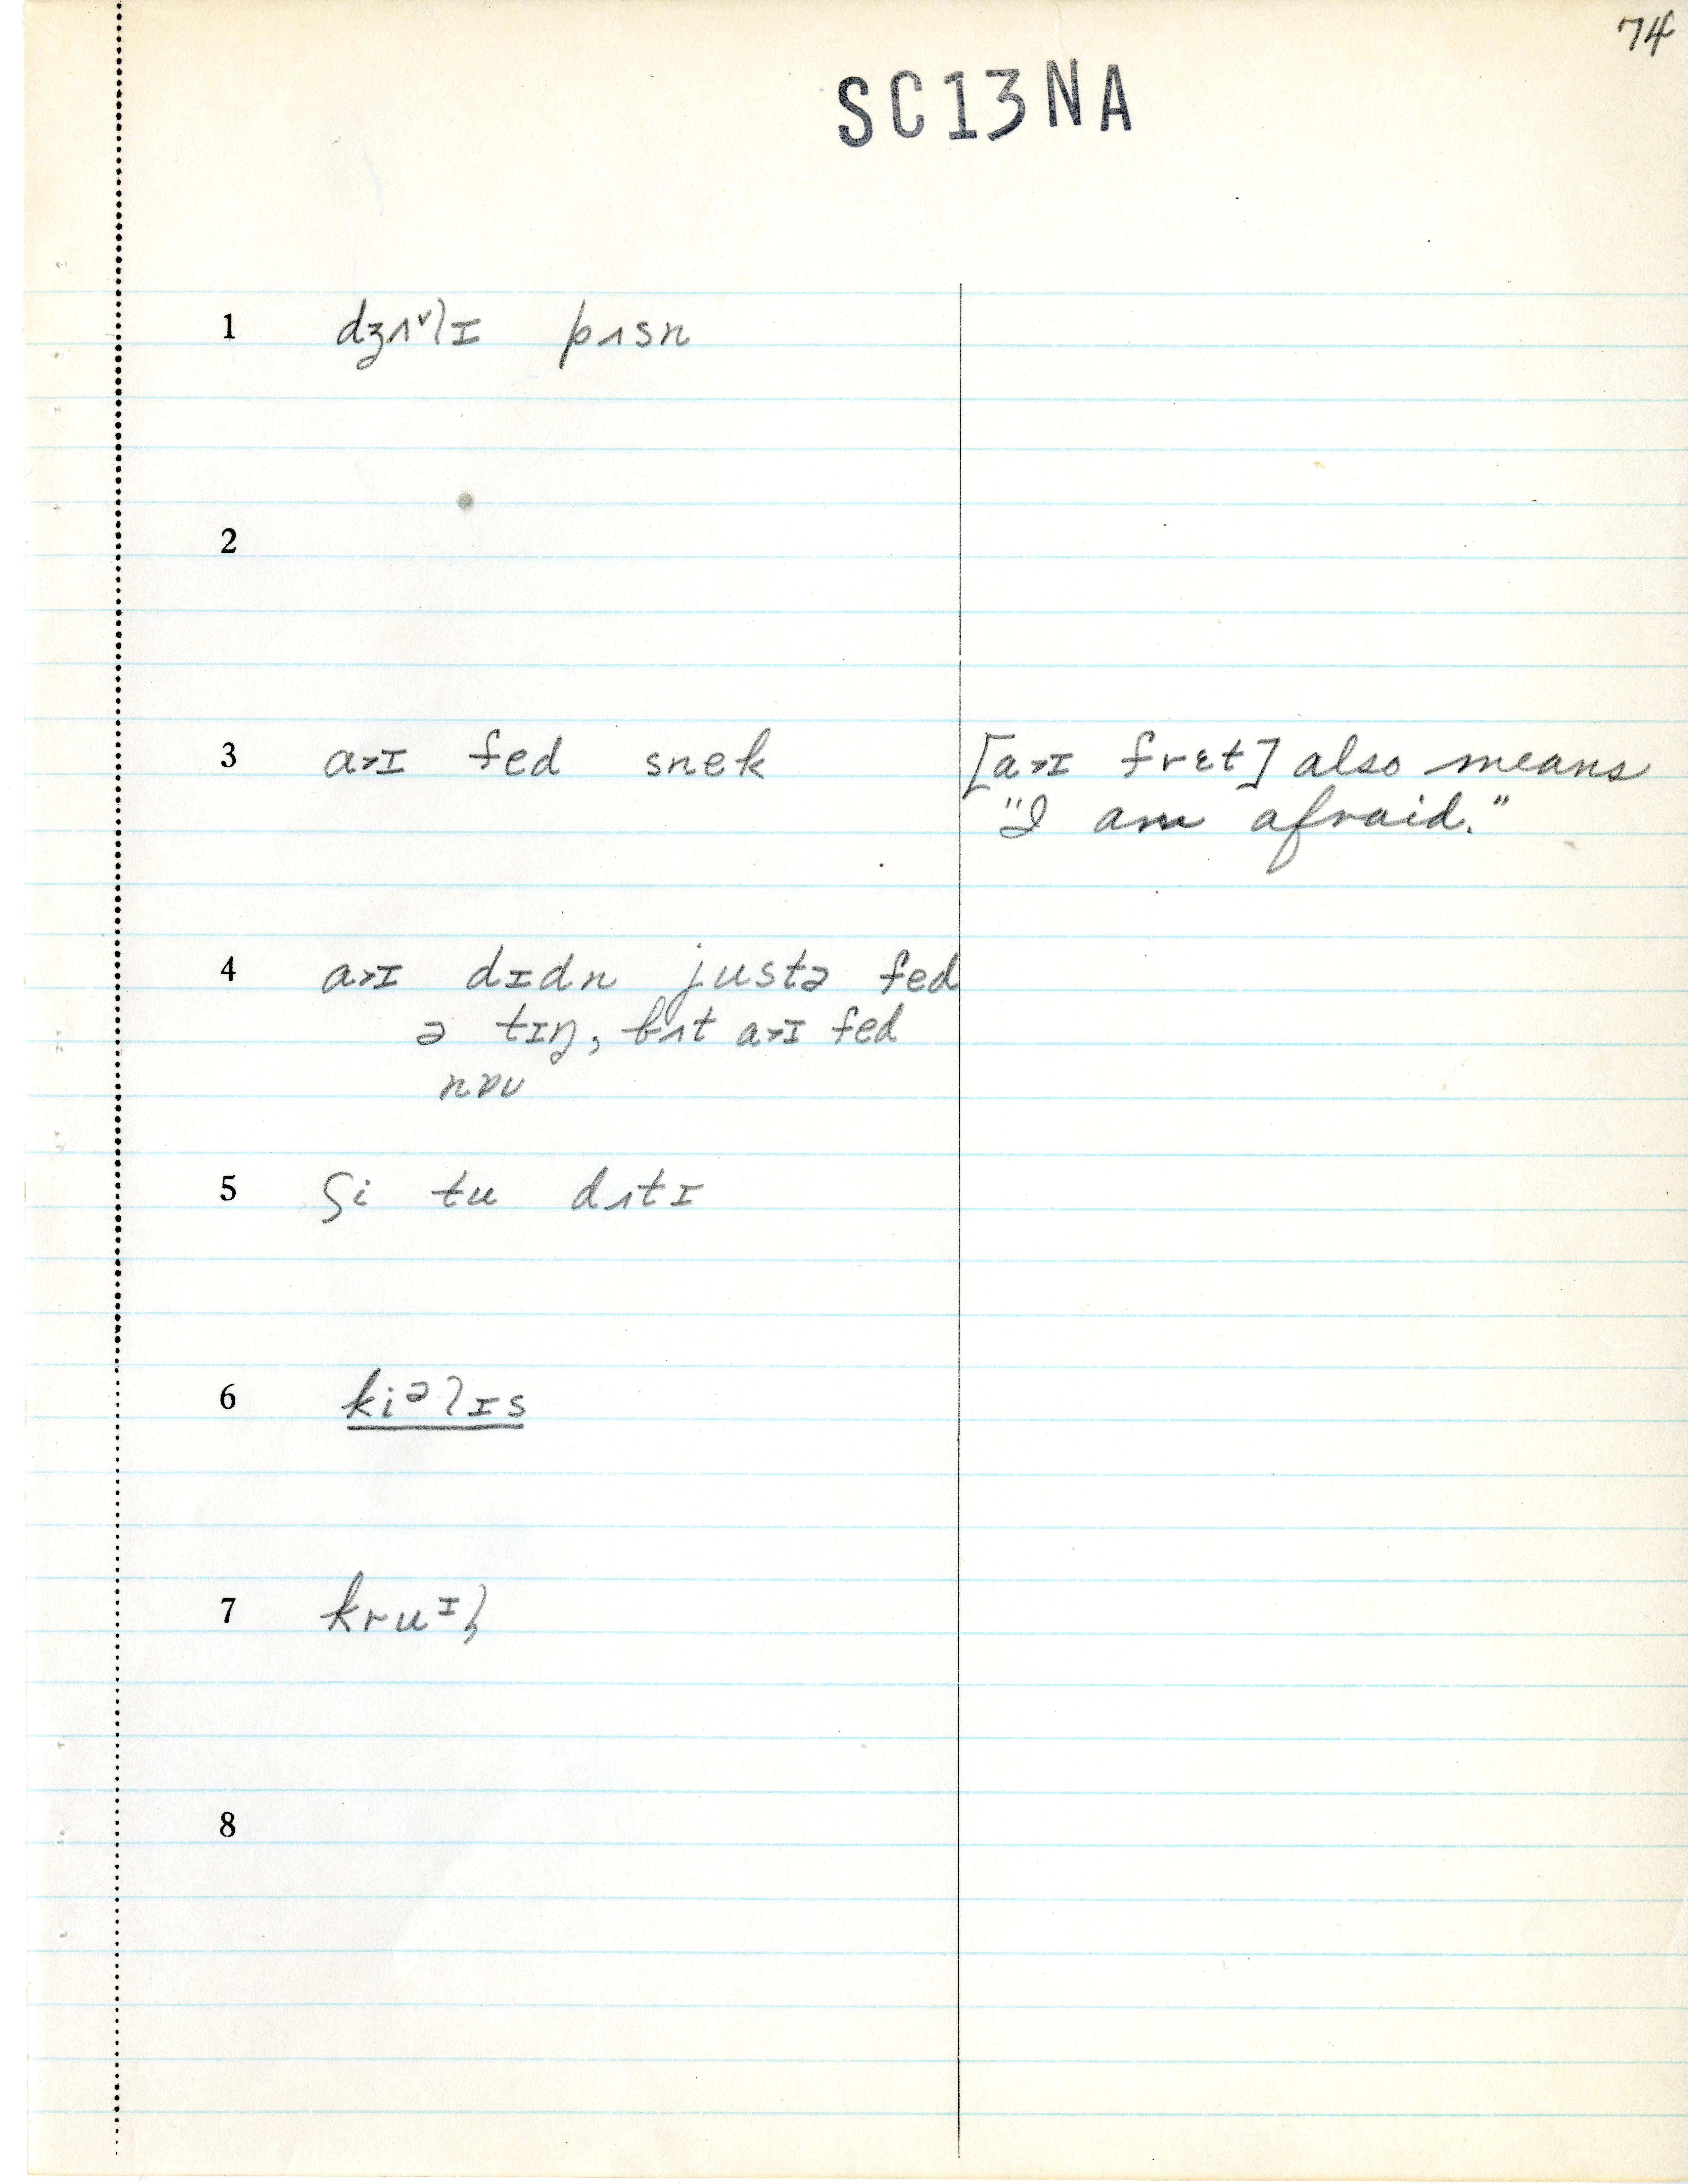 74
SC13NA
1 dʒʌ˅lɪ pʌsn
2
3 a˃ɪ fed snek [a˃ɪ frɛt] also means
"I am afraid."
4 a˃ɪ dɪdn justə fed
ə tɪŋ, bʌt a˃ɪ fed
nɒu
5 ʃi tu dʌtɪ
6 kiᵊlɪs
7 kruᶦl̩
8